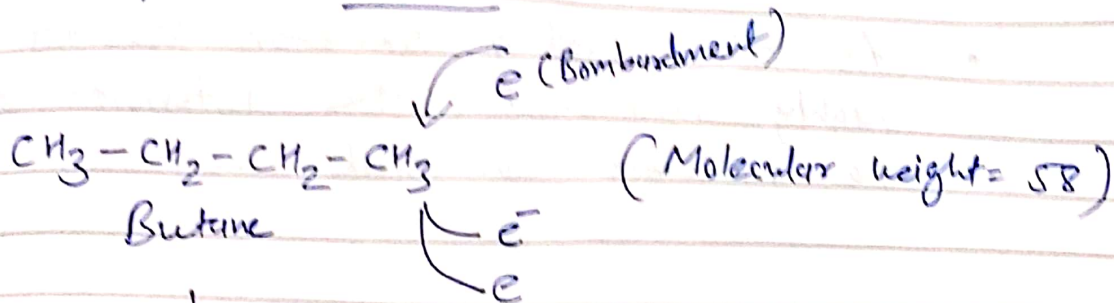 e (Bombardment)
CH₃ – CH₂ – CH₂ – CH₃ (Molecular weight = 58)
Butane e⁻
e